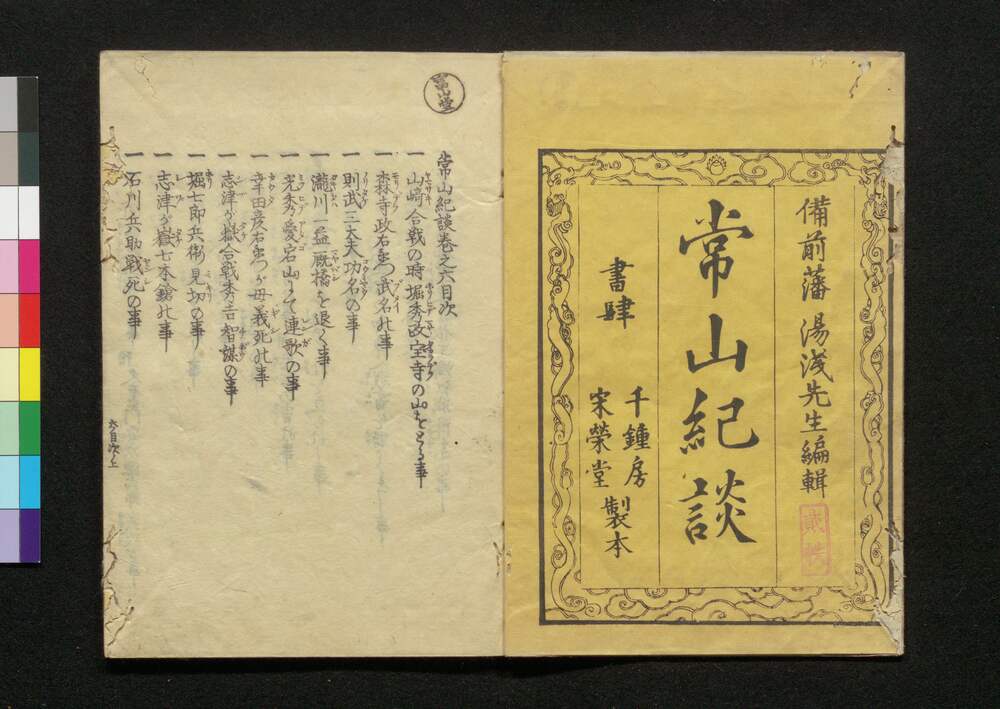 備前藩 湯浅先生編輯
常山紀談
書肆
千鍾房
宋榮堂
製本
常山紀談巻之六目次
一 山崎合戦の時堀秀政宝寺の山をとる事
一 森寺政右衛門武名の事
一 則武三太夫功名の事
一 瀧川一益厩橋を退く事
一 光秀愛宕山にて連歌の事
一 幸田彦右衛門が母義死の事
志津が嶽合戦秀吉智謀の事
一 堀七郎兵衛見切の事
一 志津が嶽七本鎗の事
一 石川兵助戦死の事
六目次上